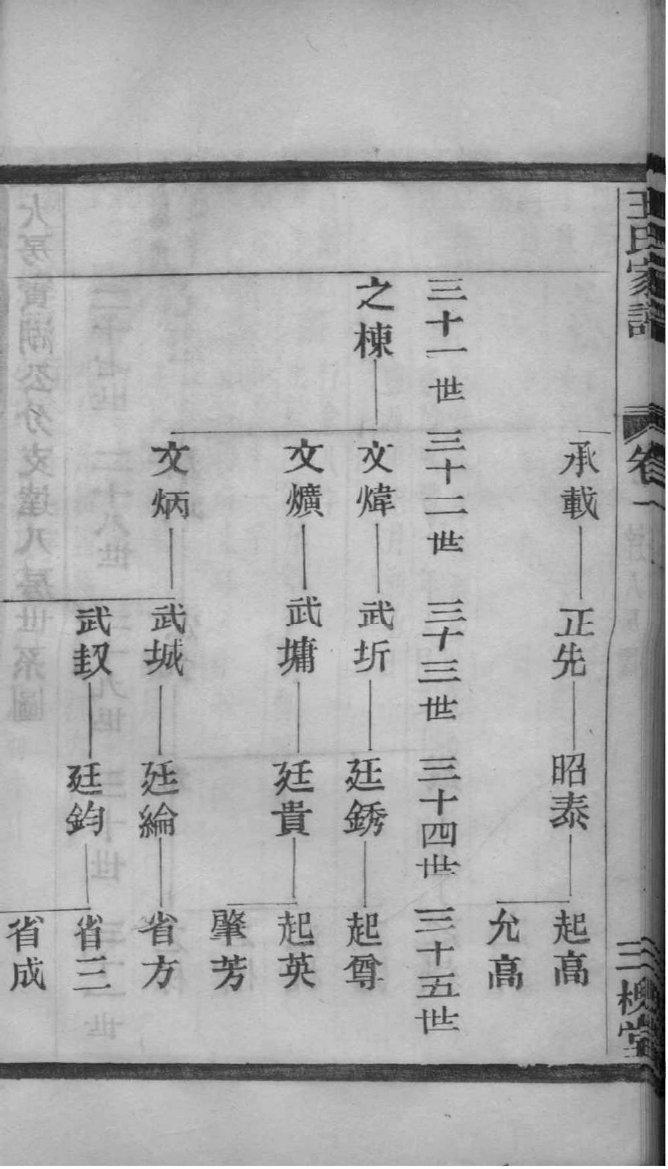 王氏家譜
卷一
三槐堂
承載
正先
昭泰
起高
允高
三十一世
三十二世
三十三世
三十四世
三十五世
之棟
文煒
武圻
廷銹
起尊
文爌
武墉
廷貴
起英
肇芳
文炳
武城
廷綸
省方
武㘦
廷鈞
省三
省成